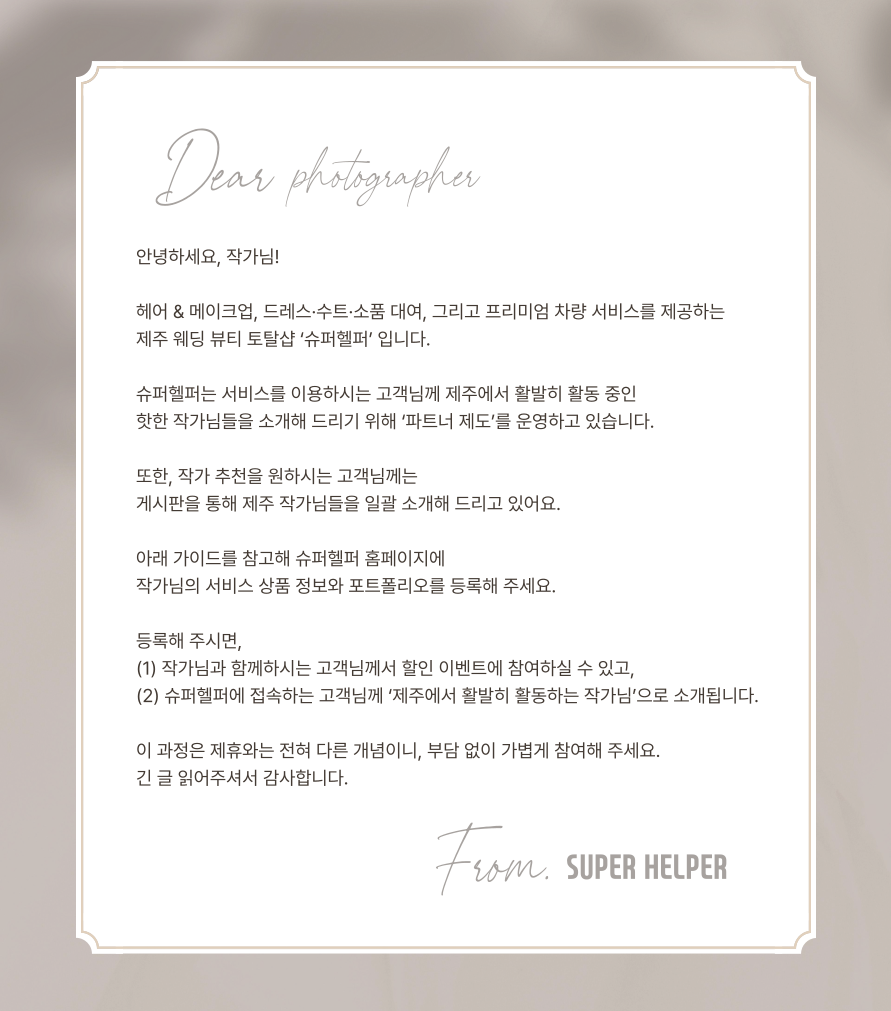 Dear photographer
안녕하세요, 작가님!
헤어 & 메이크업, 드레스·수트·소품 대여, 그리고 프리미엄 차량 서비스를 제공하는
제주 웨딩 뷰티 토탈샵 ‘슈퍼헬퍼’ 입니다.
슈퍼헬퍼는 서비스를 이용하시는 고객님께 제주에서 활발히 활동 중인
핫한 작가님들을 소개해 드리기 위해 ‘파트너 제도’를 운영하고 있습니다.
또한, 작가 추천을 원하시는 고객님께는
게시판을 통해 제주 작가님들을 일괄 소개해 드리고 있어요.
아래 가이드를 참고해 슈퍼헬퍼 홈페이지에
작가님의 서비스 상품 정보와 포트폴리오를 등록해 주세요.
등록해 주시면,
(1) 작가님과 함께하시는 고객님께서 할인 이벤트에 참여하실 수 있고,
(2) 슈퍼헬퍼에 접속하는 고객님께 ‘제주에서 활발히 활동하는 작가님’으로 소개됩니다.
이 과정은 제휴와는 전혀 다른 개념이니, 부담 없이 가볍게 참여해 주세요.
긴 글 읽어주셔서 감사합니다.
From. SUPER HELPER